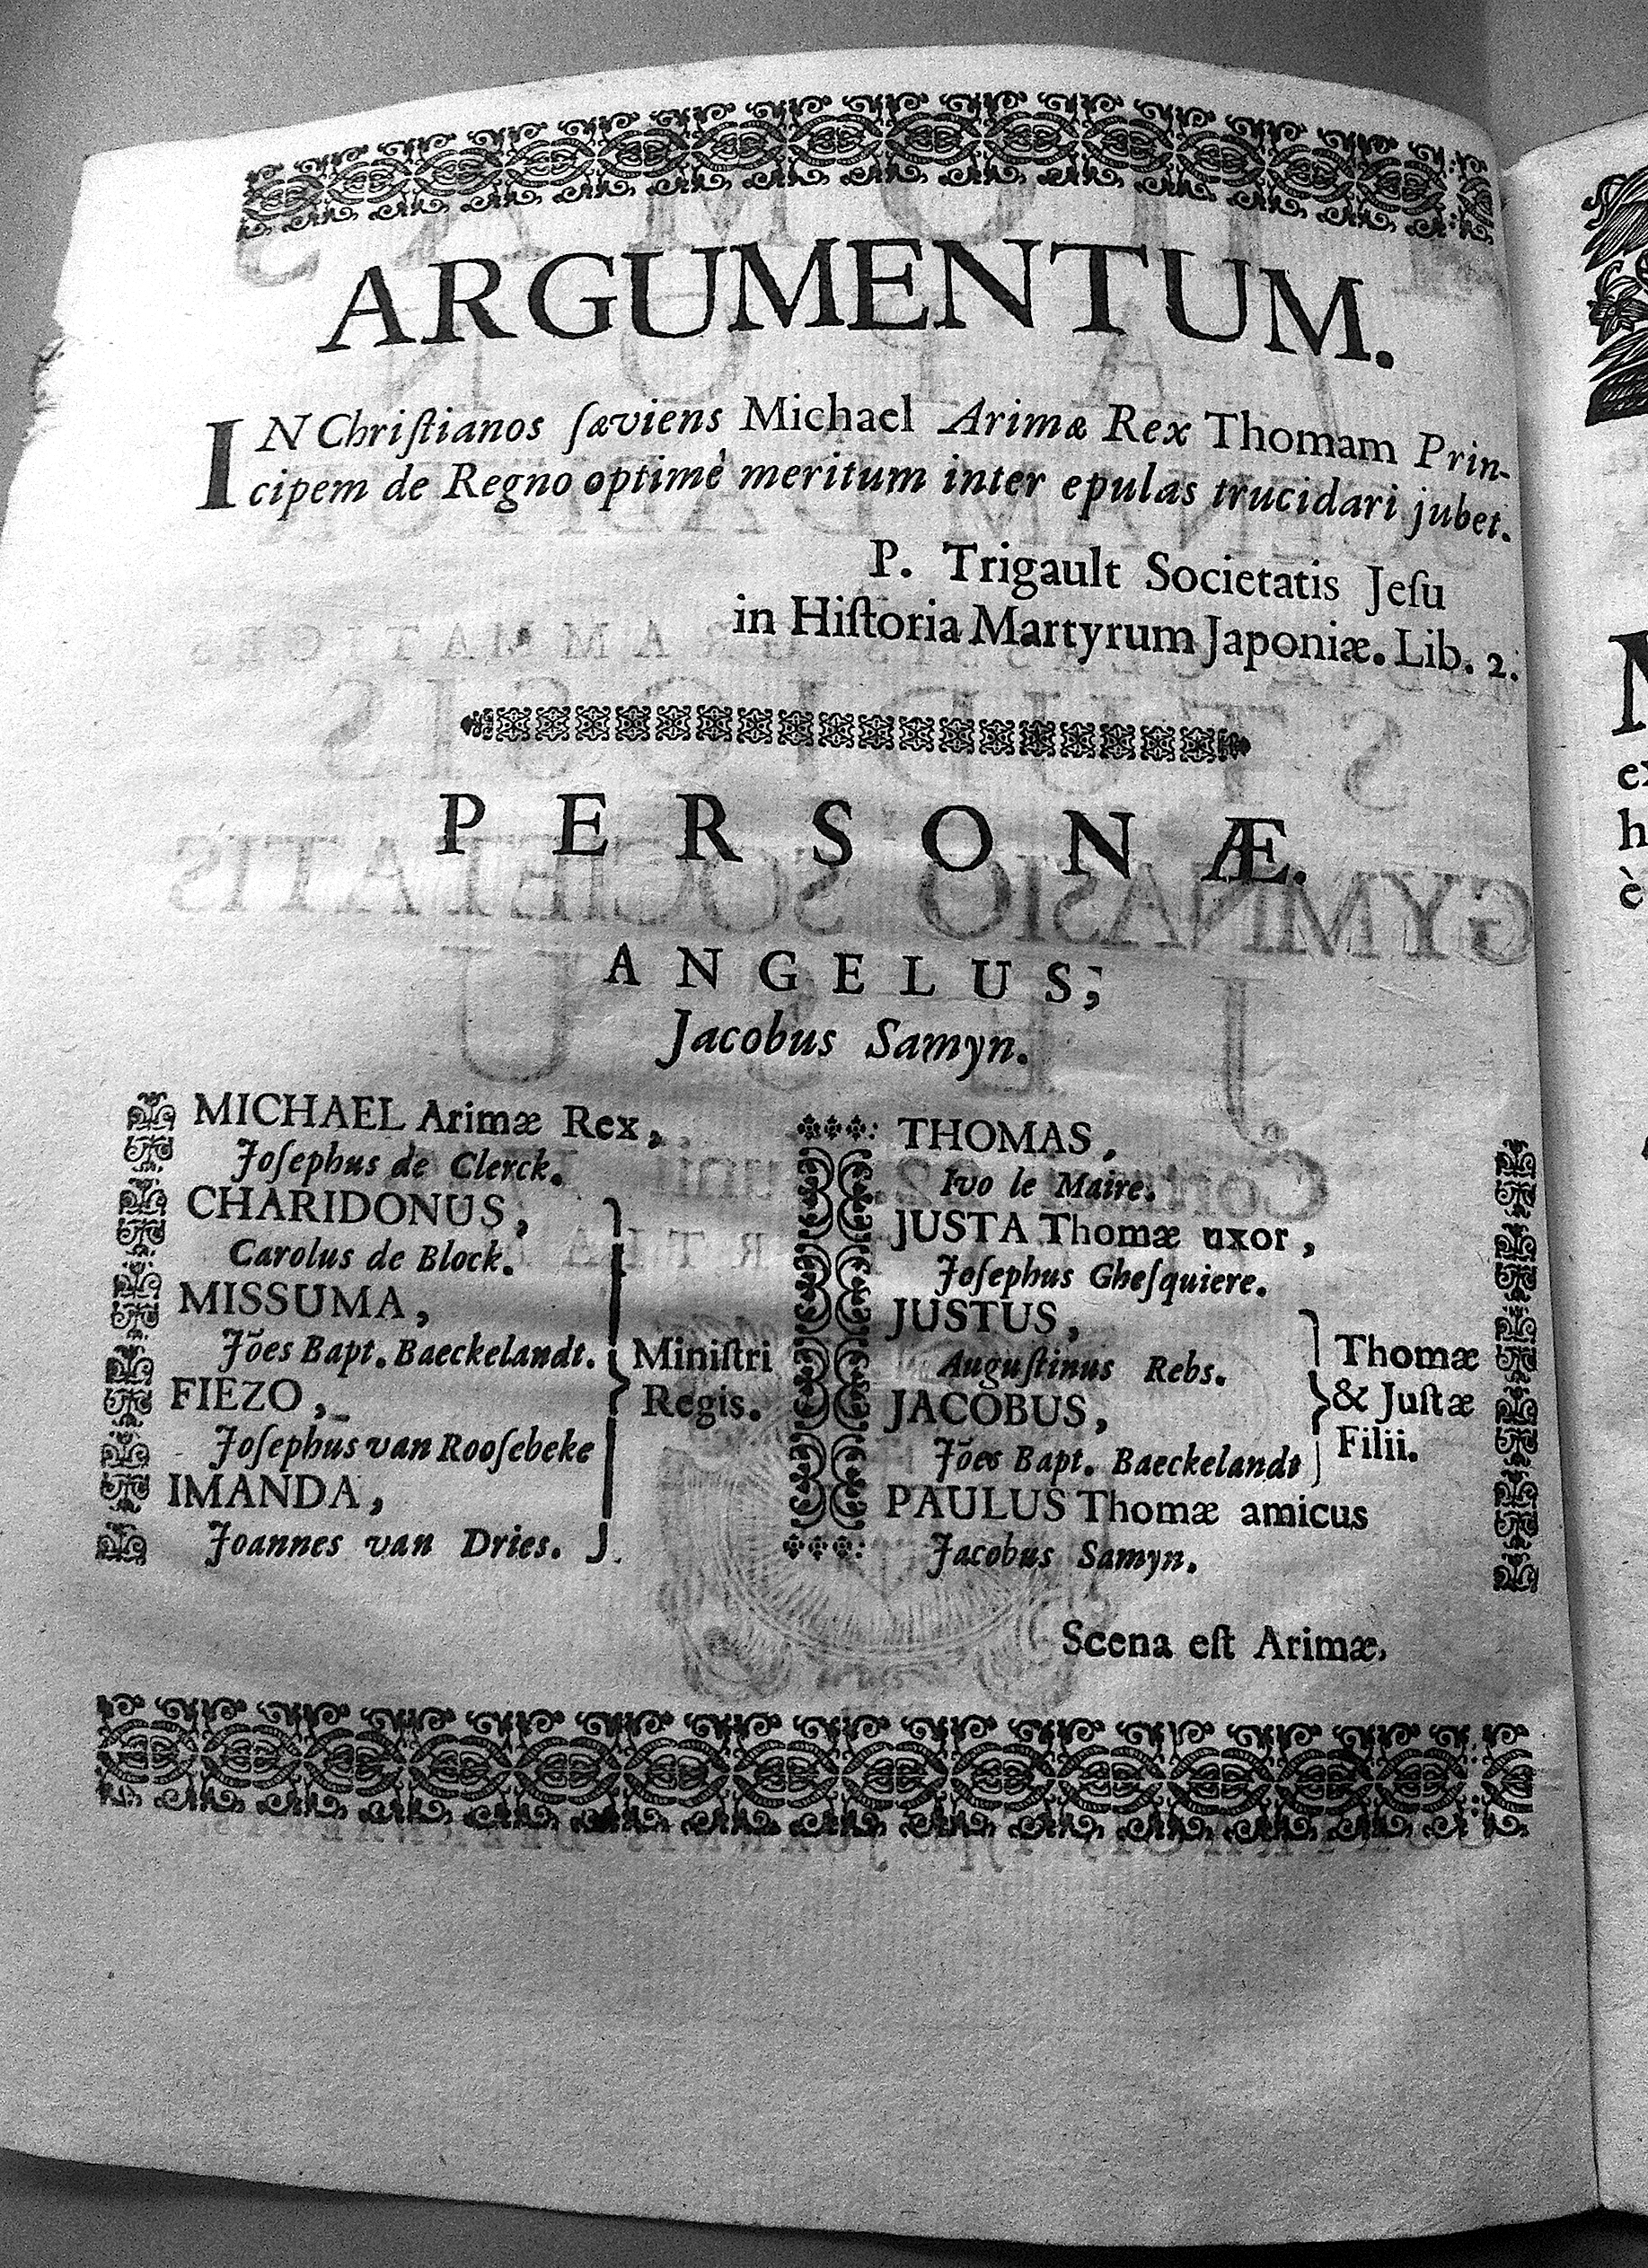 ARGUMENTUM.
IN Chriſtianos ſæviens Michael Arimæ Rex Thomam Prin-
cipem de Regno optimè meritum inter epulas trucidari jubet.
P. Trigault Societatis Jeſu
in Hiſtoria Martyrum Japoniæ. Lib. 2.
PERSONÆ.
ANGELUS;
Jacobus Samyn.
MICHAEL Arimæ Rex,
Joſephus de Clerck.
CHARIDONUS,
Carolus de Block.
MISSUMA,
Jōes Bapt. Baeckelandt.
FIEZO,
Joſephus van Rooſebeke
IMANDA,
Joannes van Dries.
Miniſtri
Regis.
THOMAS,
Ivo le Maire.
JUSTA Thomæ uxor,
Joſephus Gheſquiere.
JUSTUS,
Auguſtinus Rebs.
JACOBUS,
Jōes Bapt. Baeckelandt
Thomæ
& Juſtæ
Filii.
PAULUS Thomæ amicus
Jacobus Samyn.
Scena eſt Arimæ,